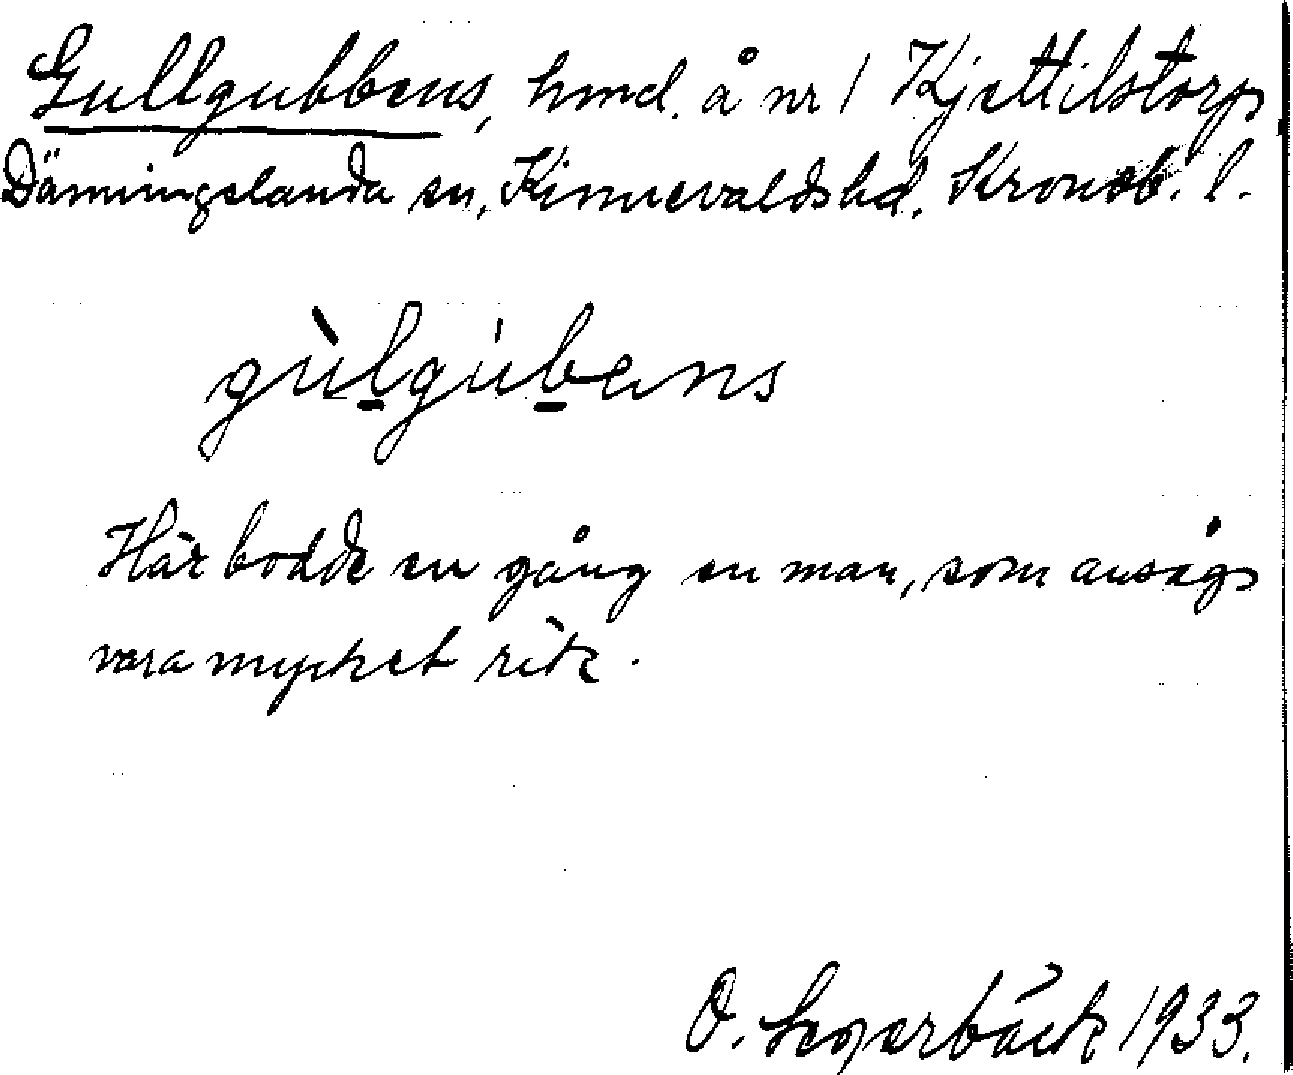 Gullgubbens, hmd. å nr 1 Kjettilstorp
Dänningelanda sn, Kinnevalds hd. Kronob. l.
gùlgúbens
Här bodde en gång en man, som ansågs
vara mycket rik.
O. 1933.